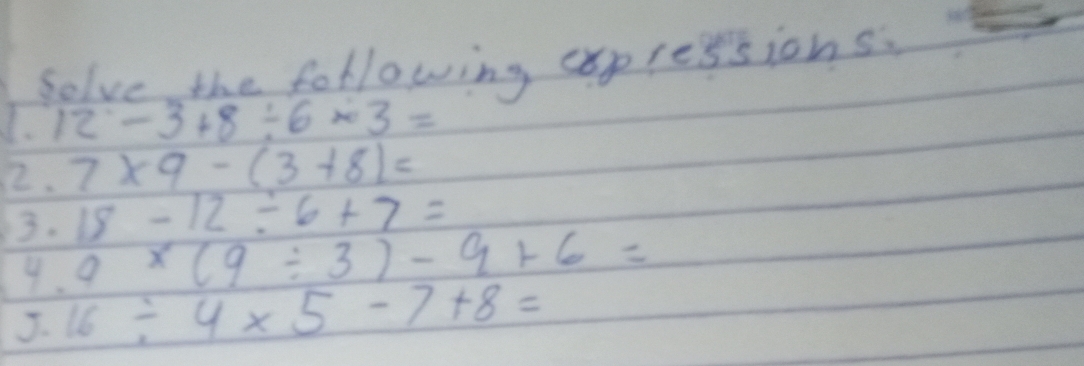 Solve the following expressions.
1. 12 - 3+8 ÷ 6 × 3 =
2. 7 × 9 - (3 +8) =
3. 18 - 12 ÷ 6 + 7 =
4. 9 × (9 ÷ 3) - 9 + 6 =
5. 16 ÷ 4 × 5 - 7 +8 =